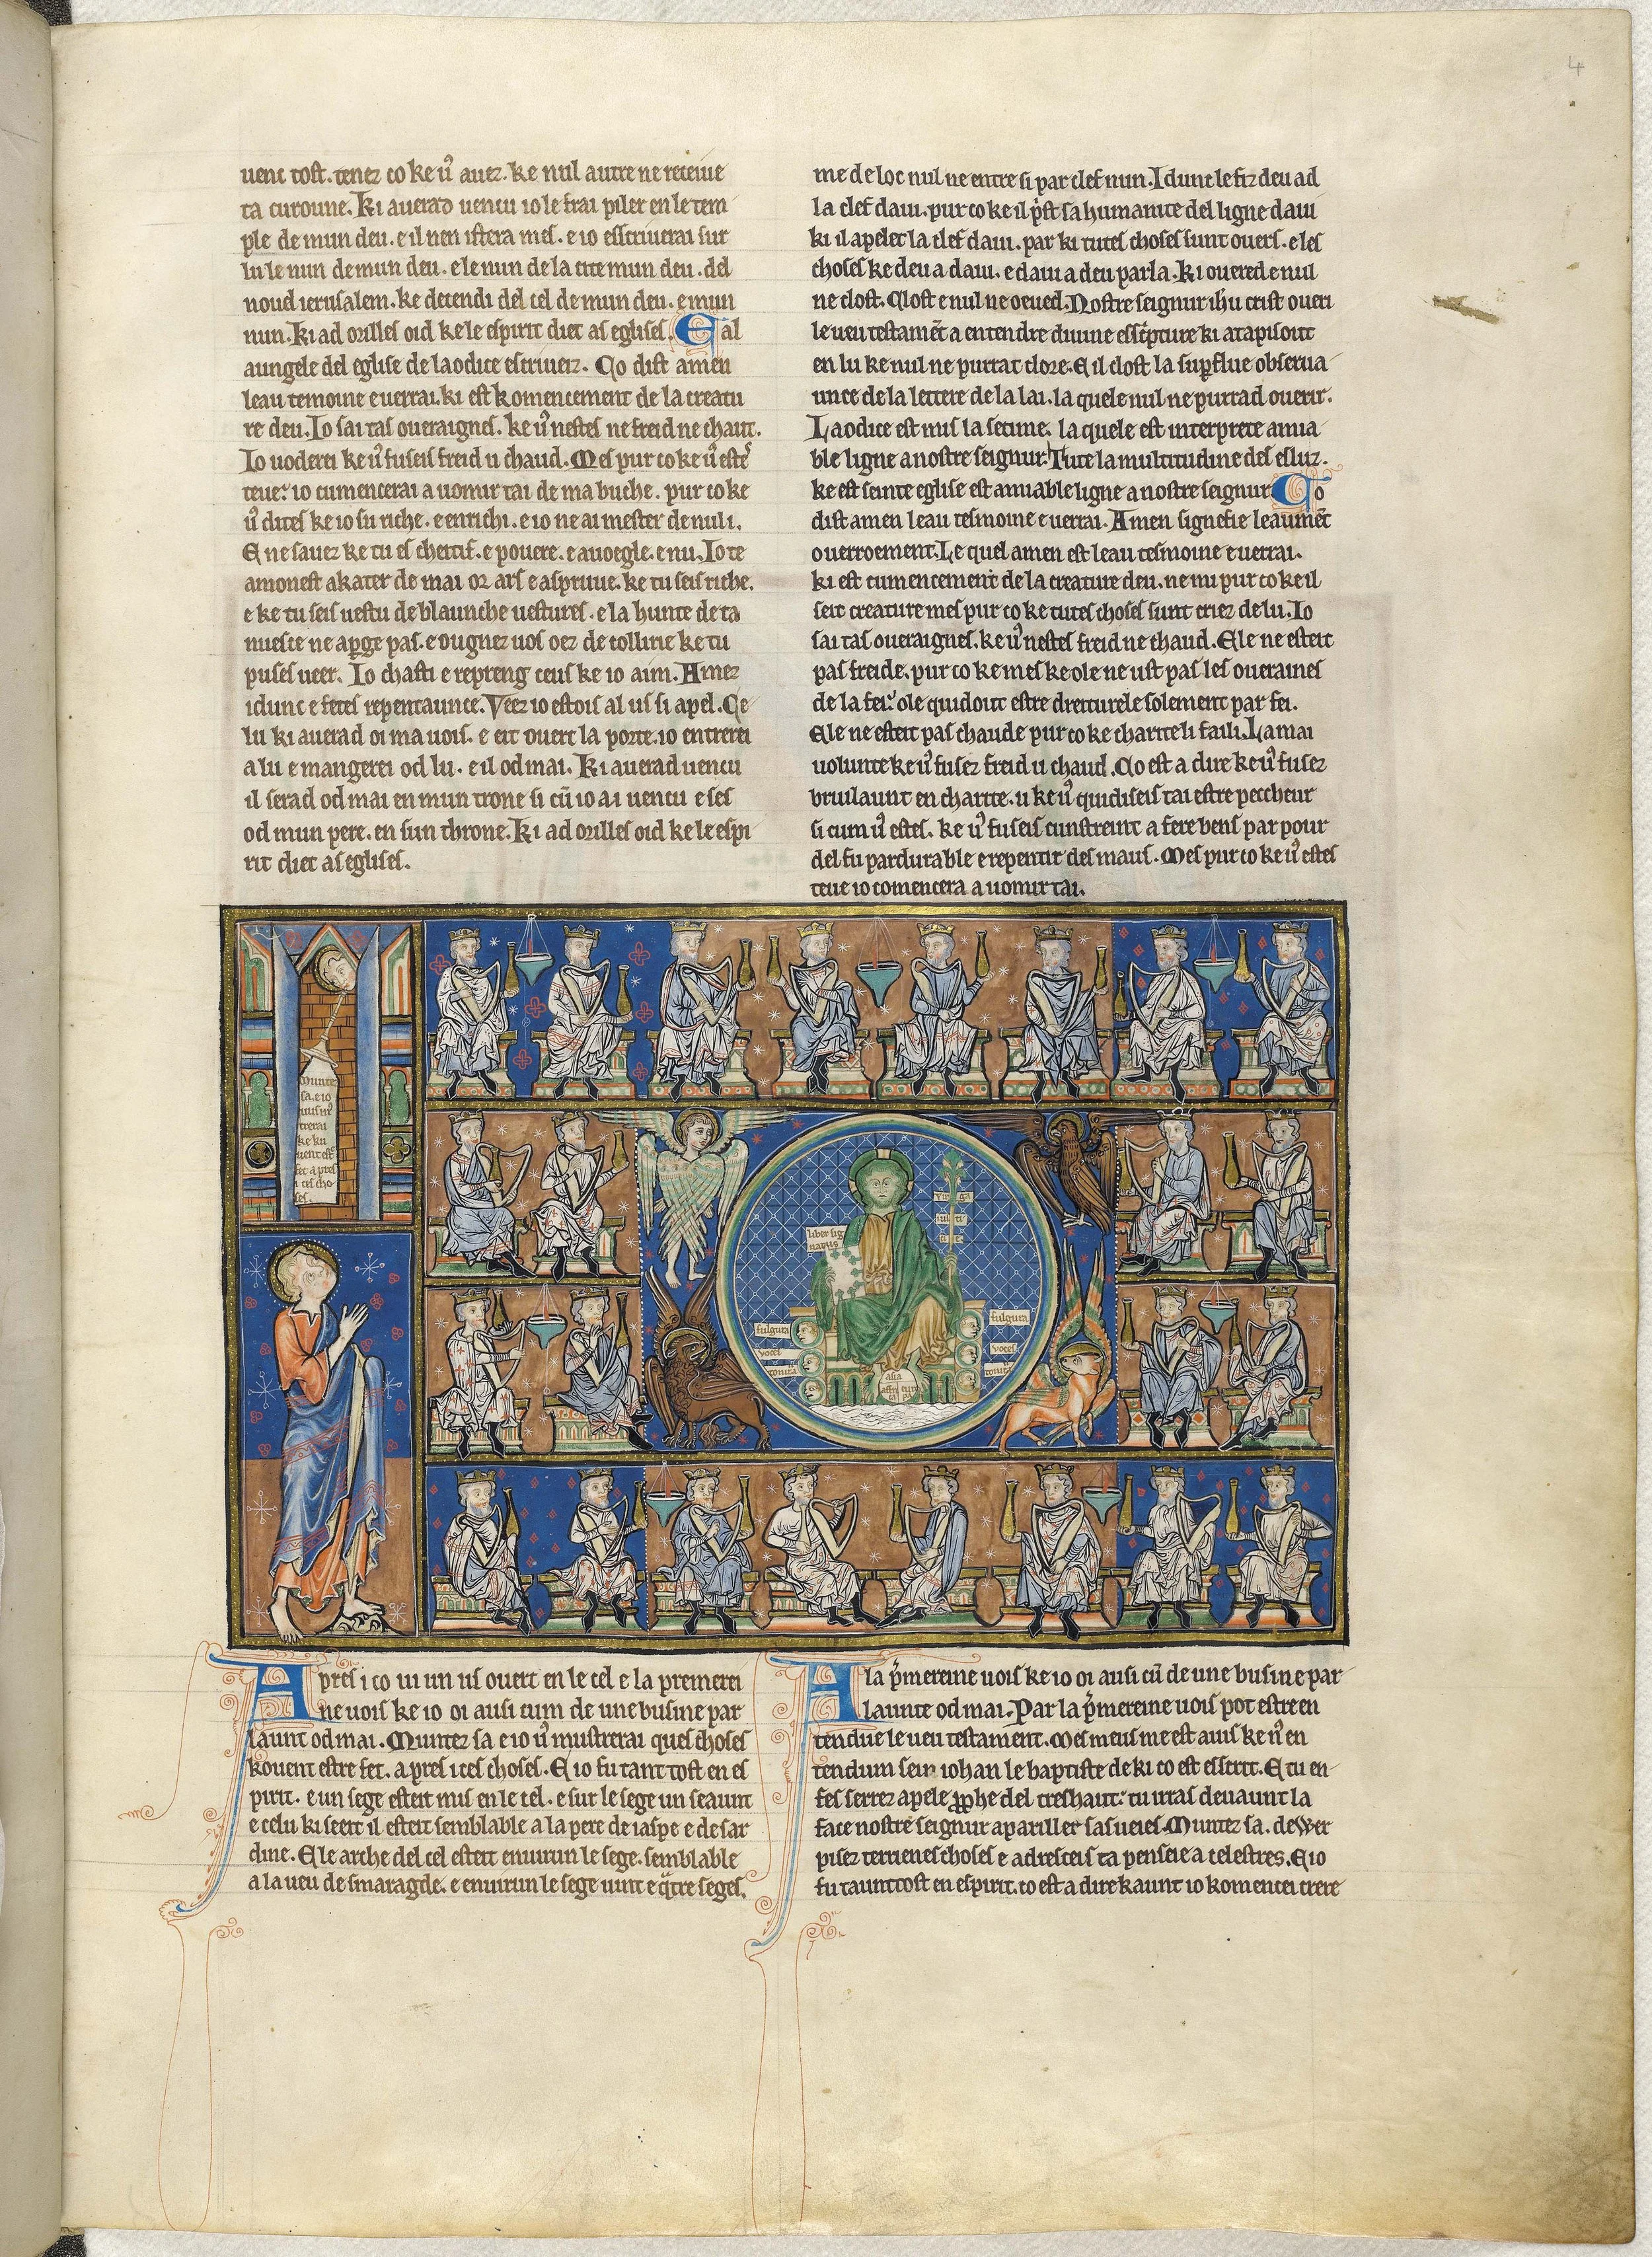 4
uent tost. tenez co ke uꝰ auez. ke nul autre ne receiue
ta curoune. Ki auerad uencu io le frai piler en le tem
ple de mun deu. e il nen istera mes. e io esscriuerai sur
lu le nun de mun deu. e le nun de la cite mun deu. del
nouel ierusalem. ke decendi del cel de mun deu. e mun
nun. Ki ad orilles oid ke le espirit diet as eglises. E al
aungele del eglise de laodice escriuez. Co dist amen
leau temoine e uerrai. ki est komencement de la creatu
re deu. Io sai tas oueraignes. ke uꝰ nestes ne freid ne chaut.
Io uoderei ke uꝰ fuseis freid u chaud. Mes pur co ke uꝰ este
teue: io cumencerai a uomir tai de ma buche. pur co ke
uꝰ dites ke io su riche. e enrichi. e io ne ai mester de nuli.
E ne sauez ke tu es chettif. e pouere. e auoegle. e nu. Io te
amonest akater de mai or ars e aspriuue. ke tu seis riche.
e ke tu seis uestu de blaunche uestures. e la hunte de ta
nuesce ne apꝑge pas. e ougnez uos oez de collirie ke tu
puses ueer. Io chasti e repreng ceus ke io aim. Amez
idunc e fetes repentaunce. Veez io estois al us si apel. Ce
lu ki auerad oi ma uois. e eit ouert la porte. io entrerei
a lu e mangerei od lu. e il od mai. Ki auerad uencu
il serad od mai en mun trone si cū io ai uencu e ses
od mun pere. en sun throne. Ki ad orilles oid ke le espi
rit diet as eglises.
me de loc nul ne entre si par clef nun. Idunc le fiz deu ad
la clef daui. pur co ke il pst sa humanite del ligne daui
ki il apelet la clef daui. par ki tutes choses sunt ouers. e les
choses ke deu a daui. e daui a deu parla. Ki ouered e nul
ne clost. Clost e nul ne oeued. Nostre seignur ihu crist oueri
le ueu testamēt a entendre diuine esscripture ki atapisout
en lu ke nul ne purrat clore. E il clost la supflue obserua
unce de la lettere de la lai. la quele nul ne purrad ouerir.
Laodice est nus la setime. la quele est interprete amia
ble ligne a nostre seignur. Tute la multitudine des esluz.
ke est seinte eglise est amiable ligne a nostre seignur Co
dist amen leau tesmoine e uerrai. Amen signefie leaumēt
ou erroement. Le quel amen est leau tesmoine e uerrai.
ki est cumencement de la creature deu. ne mi pur co ke il
seit creature mes pur co ke tutes choses sunt criez de lu. Io
sai tas oueraignes. ke uꝰ nestes freid ne chaud. Ele ne esteit
pas freide. pur co ke mes ke ole ne ust pas les oueraines
de la fei: ole quidout estre dreiturele solement par fei.
Ele ne esteit pas chaude pur co ke charite li faili. La mai
uolunte ke uꝰ fusez freid u chaud. Co est a dire ke uꝰ fusez
bruilaunt en charite. u ke uꝰ quidiseis tai estre peccheur
si cum uꝰ estes. ke uꝰ fuseis cunstreint a fere bens par pour
del fu pardurable e repentir des maus. Mes pur co ke uꝰ estes
teue io comencera a uomir tai.
Munte
sa. e io
uus mꝰ
trerai
ke ku
uent est
fet apres
ices cho
ses.
liber sig
natus
uirga
fulgura
uoces
tonitꝰa
fulgura
uoces
tonitꝰa
asia
Apres ico ui un us ouert en le cel e la premerei
ne uois ke io oi ausi cum de une busine par
launt od mai. Muntez sa e io uꝰ mustrerai quels choses
kouent estre fet. apres ices choses. E io fu tant tost en es
pirit. e un sege esteit mis en le cel. e sur le sege un seaunt
e celu ki seeit il esteit semblable a la pere de iaspe e de sar
dine. E le arche del cel esteit enuirun le sege. semblable
a la ueu de smaragde. e enuirun le sege uint e qꝰtre seges.
A la pꝰmereine uois ke io oi ausi cū de une busine par
launte od mai. Par la pꝰmereine uois pot estre en
tendue le ueu testament. Mes meus me est auis ke uꝰ en
tendum sein iohan le baptiste de ki co est esscrit. E tu en
fes serrez apele pphe del treshaut: tu irras deuaunt la
face nostre seignur apariller sas ueies. Muntez sa. deswer
pisez terrienes choses e adresceis ta penseie a celestres. E io
fu taunt tost en espirit. co est a dire kaunt io komencei crere